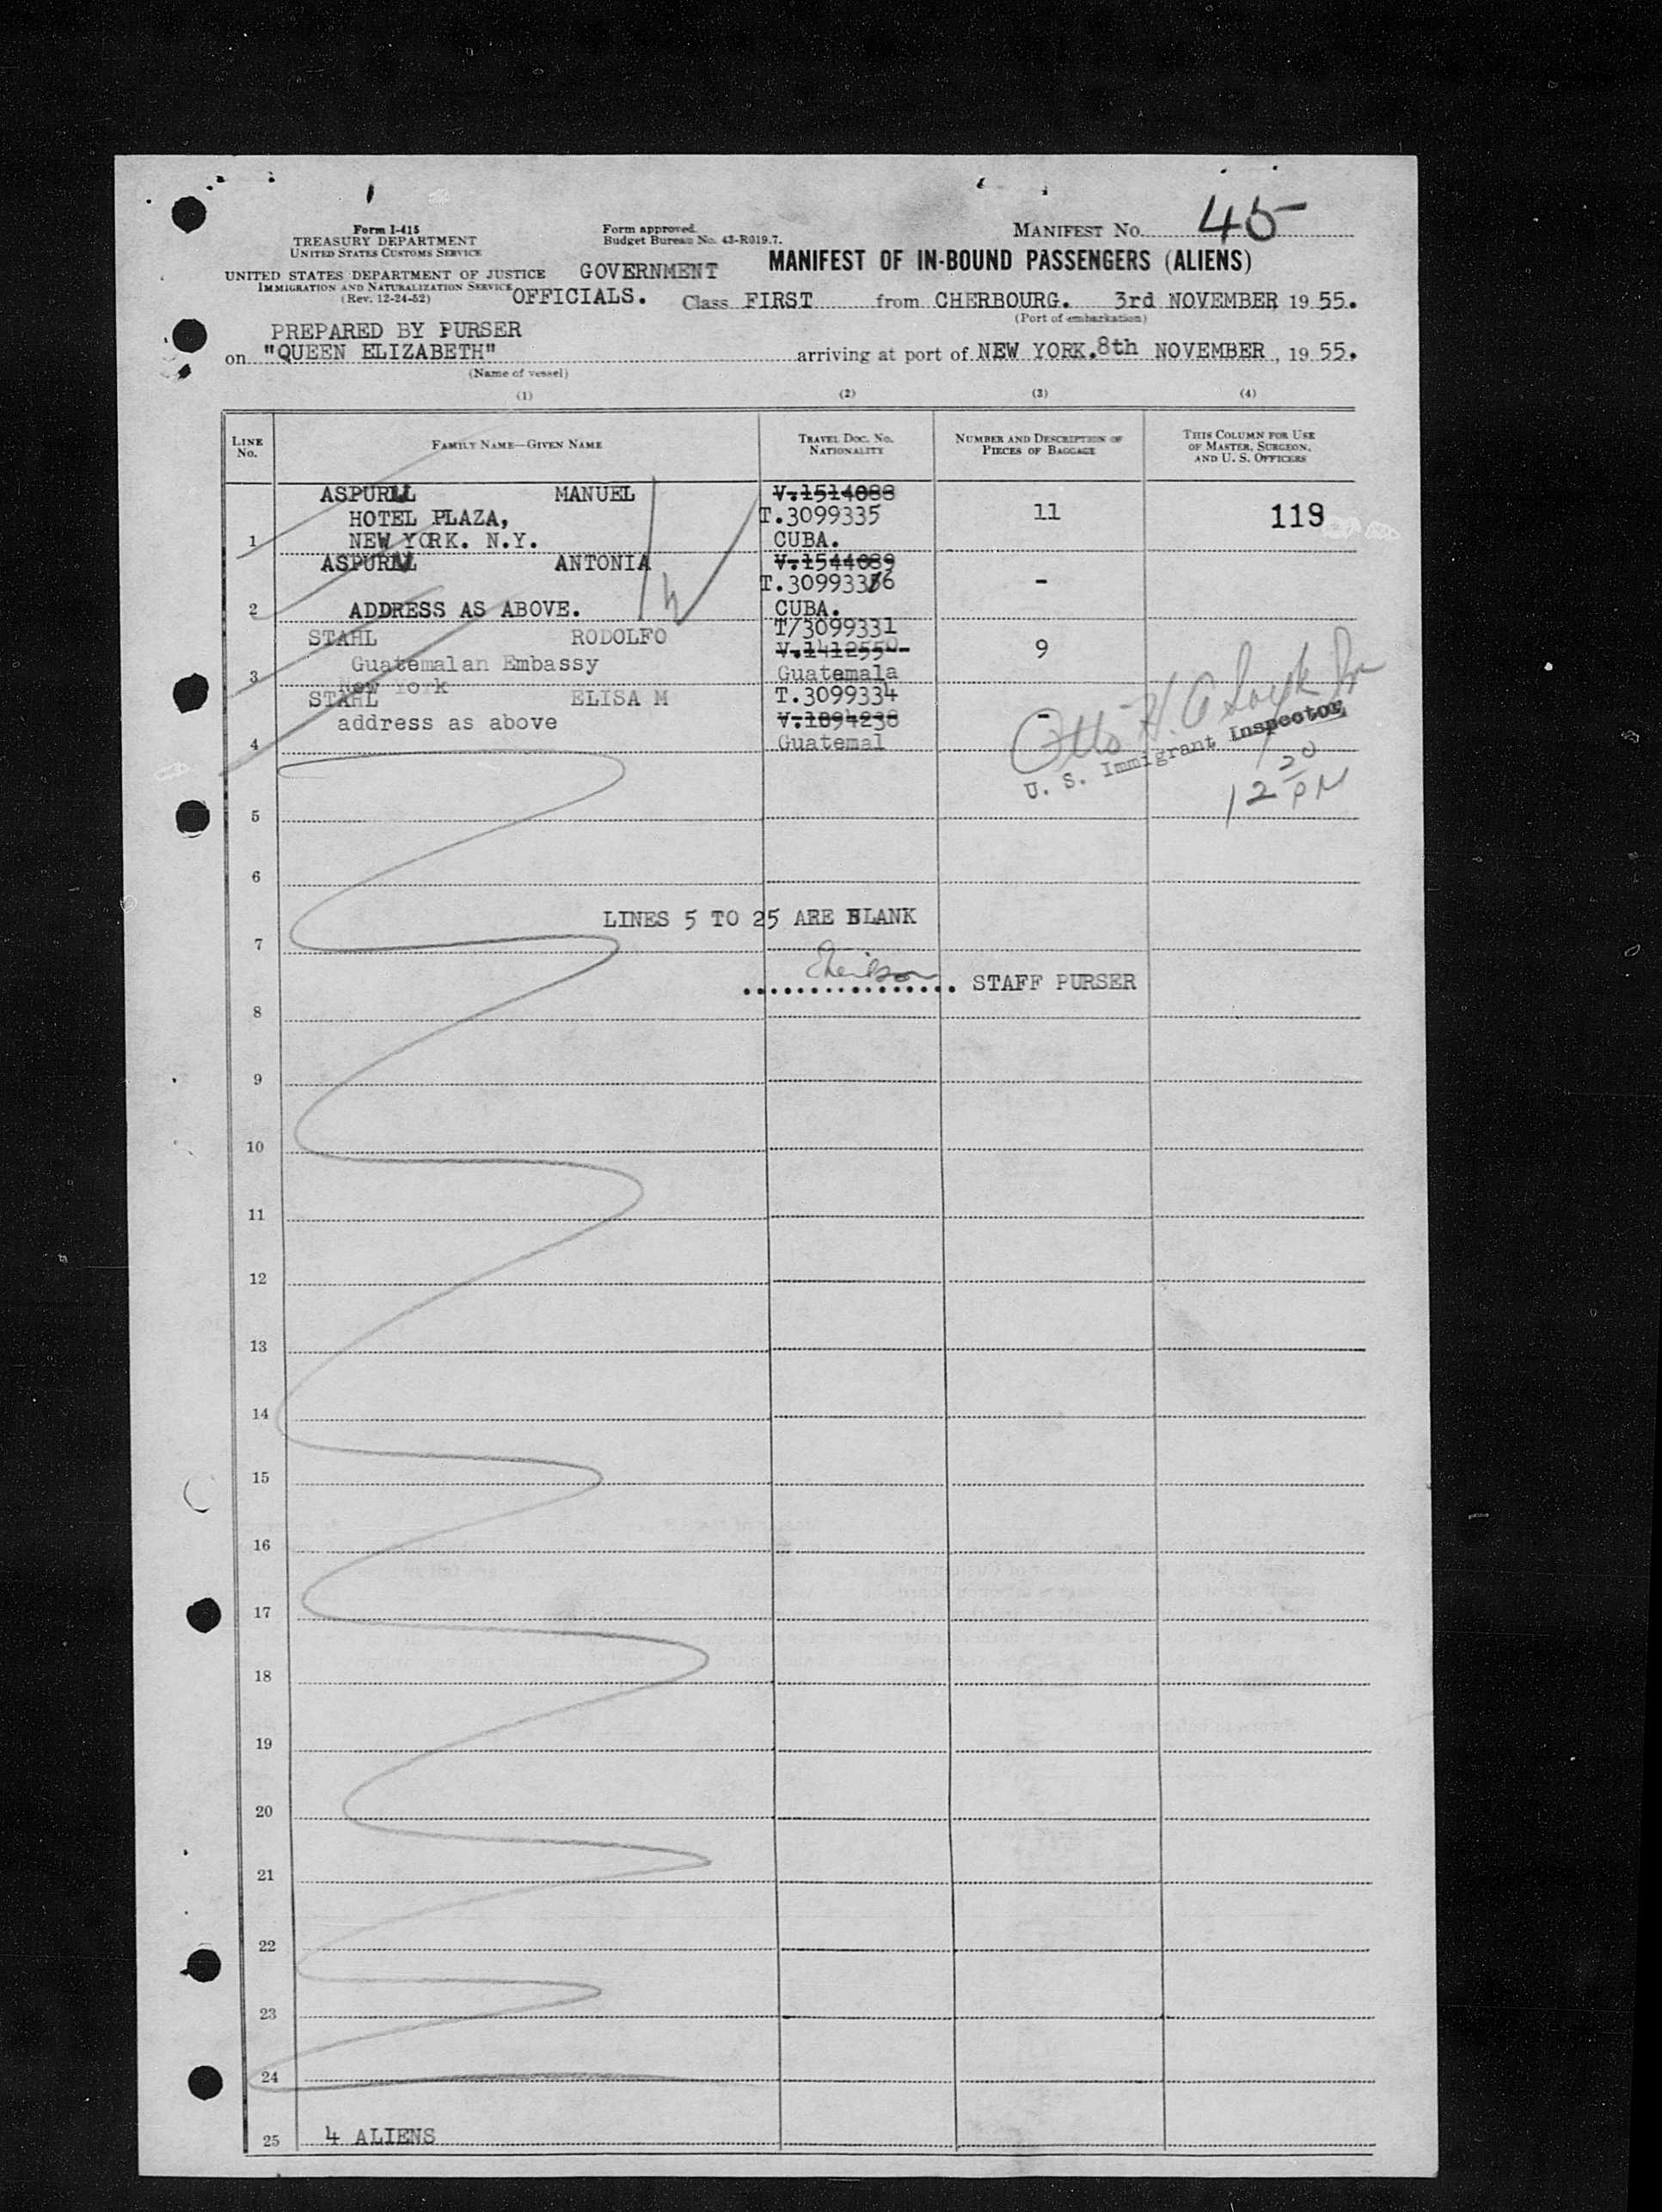 Form I-415
TREASURY DEPARTMENT
UNITED STATES CUSTOMS SERVICE
UNITED STATES DEPARTMENT OF JUSTICE
IMMIGRATION AND NATURALIZATION SERVICE
(Rev. 12-24-52)
Form approved.
Budget Bureau No. 43-R019.7.
MANIFEST NO. 45
GOVERNMENT
OFFICIALS.
MANIFEST OF IN-BOUND PASSENGERS (ALIENS)
Class FIRST from CHERBOURG. 3rd NOVEMBER, 1955.
(Port of embarkation)
PREPARED BY PURSER
on "QUEEN ELIZABETH" arriving at port of NEW YORK. 8th NOVEMBER, 1955.
(Name of vessel)
(1) (2) (3) (4)
LINE No. FAMILY NAME—GIVEN NAME TRAVEL DOC. NO. NATIONALITY NUMBER AND DESCRIPTION OF PIECES OF BAGGAGE THIS COLUMN FOR USE OF MASTER, SURGEON, AND U. S. OFFICERS
ASPURU MANUEL V.1514088
HOTEL PLAZA, T.3099335 11 119
1 NEW YORK. N.Y. CUBA.
ASPURU ANTONIA V.1544089
T.3099336 -
2 ADDRESS AS ABOVE. CUBA.
T/3099331
STAHL RODOLFO V.1412550 9
Guatemalan Embassy Guatemala
3 New York
STAHL ELISA M T.3099334
address as above V.1894238 -
4 Guatemal
Otto H.
U. S. Immigrant Inspector
12 20 PM
5
6
LINES 5 TO 25 ARE BLANK
7
STAFF PURSER
8
9
10
11
12
13
14
15
16
17
18
19
20
21
22
23
24
25 4 ALIENS